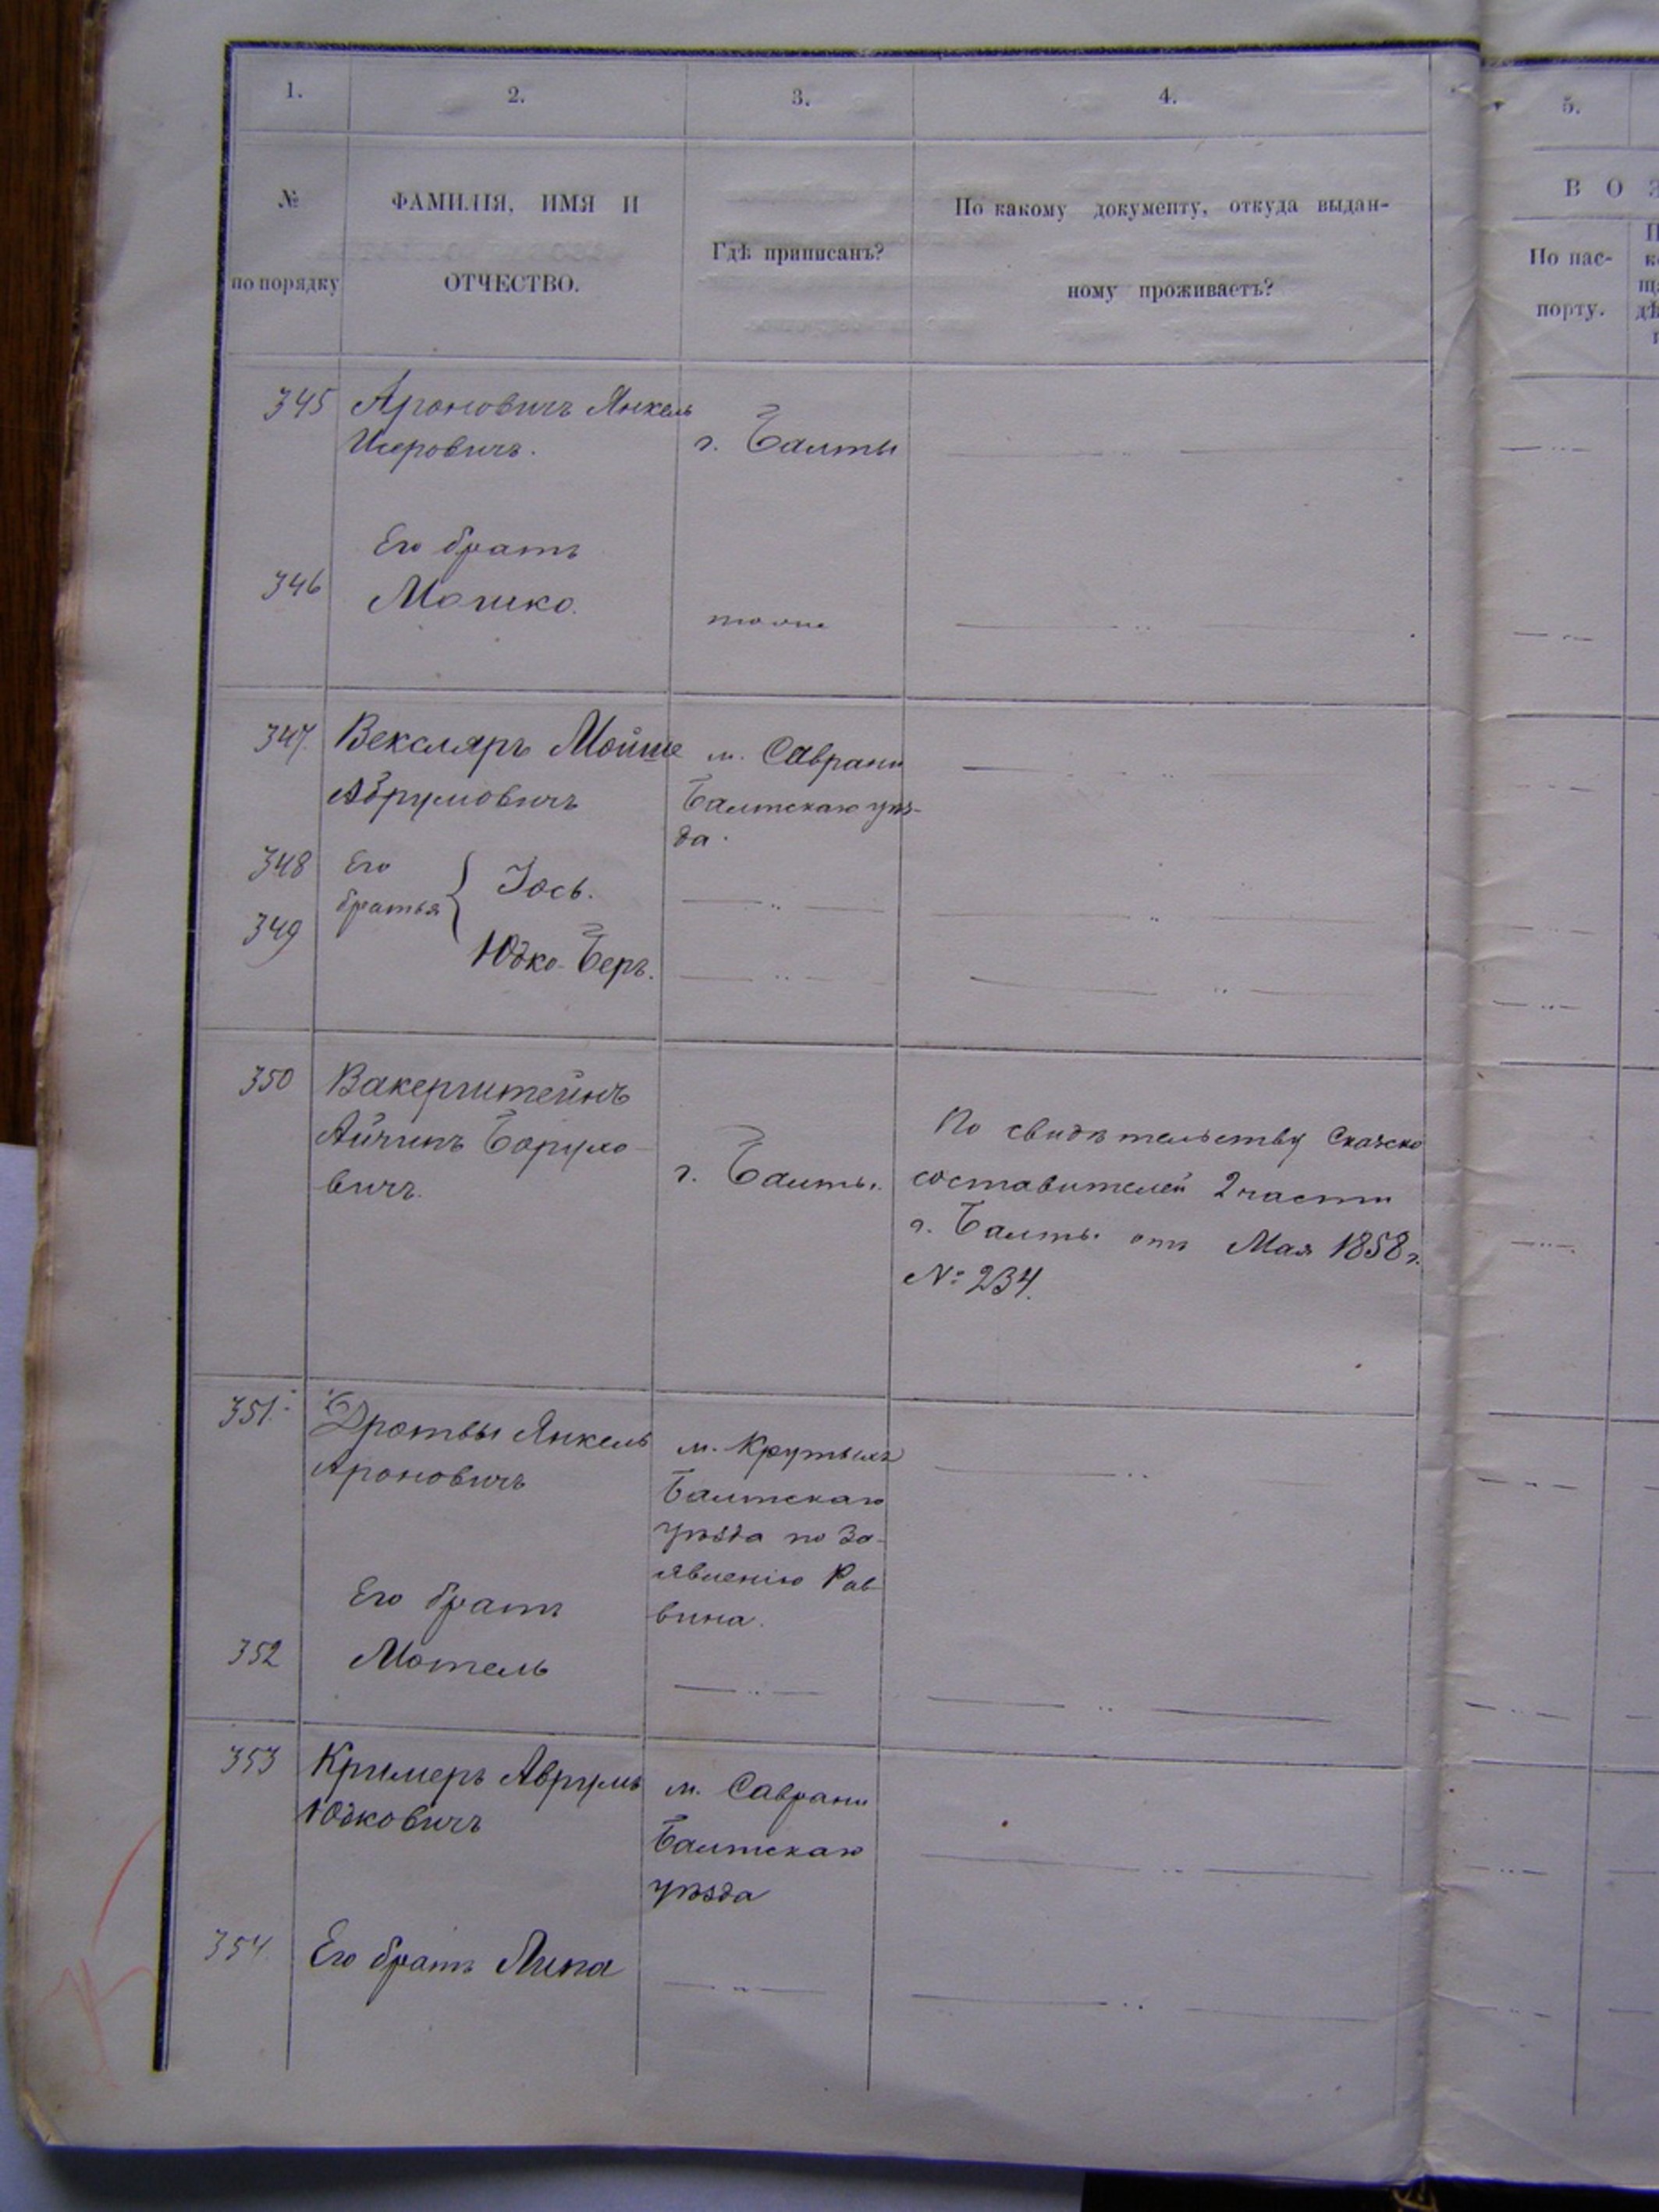 1.
2.
3.
4.
5.
№
по порядку
ФАМИЛІЯ, ИМЯ И
ОТЧЕСТВО.
Гдѣ приписанъ?
По какому документу, откуда выдан-
ному проживаетъ?
В О З
По пас-
порту.
345 Ароновичъ Янкель
г. Балты
Его братъ
346
Мошко.
тоже
347. Векслярь Мойше
Абрумовичъ
м. Саврани
Балтскаго уѣз-
да.
348 Его
братья
Іось.
349
Юдко-Беръ.
350 Вакерштейнъ
Борухо-
вичъ.
г. Балты.
По свидѣтельству Сказко
составителей 2 части
г. Балты отъ Мая 1858 г.
№ 234.
351. Дротвы Янкель
Ароновичъ
м. Крутыхъ
Балтскаго
уѣзда по За-
явленію Рав
вина.
Его братъ
352 Мотель
353 Кримеръ Аврумъ
Юдковичъ
м. Саврани
Балтскаго
уѣзда
354. Его братъ Липа